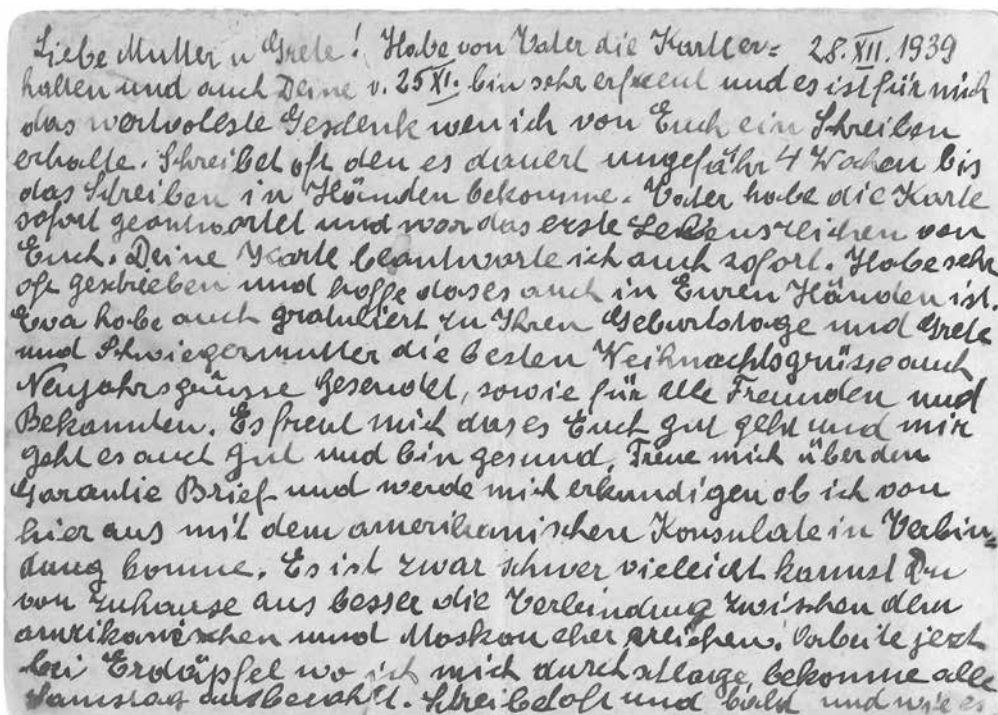 Liebe Mutter u Grete! Habe von Vater die Karte er= 28.XII.1939
halten und auch Deine v. 25 XI. bin sehr erfreut und es ist für mich
das wertvolleste Geschenk wen ich von Euch ein Schreiben
erhalte. Schreibet oft den es dauert ungefähr 4 Wochen bis
das Schreiben in Händen bekomme. Vater habe die Karte
sofort geantwortet und war das erste Lebenszeichen von
Euch. Deine Karte beantworte ich auch sofort. Habe sehr
oft geschrieben und hoffe das es auch in Euren Händen ist.
Eva habe auch gratuliert zu Ihren Geburtstage und Grete
und Schwiegermutter die besten Weihnachtsgrüsse auch
Neujahrsgrüsse gesendet, sowie für alle Freunden und
Bekannten. Es freut mich das es Euch gut geht und mir
geht es auch gut und bin gesund. Freue mich über den
Garantie Brief und werde mich erkundigen ob ich von
hier aus mit dem amerikanischen Konsulate in Verbin=
dung komme. Es ist zwar schwer vieleicht kannst Du
von zuhause aus besser die Verbindung zwischen dem
amrikanischen und Moskau eher ereichen. Arbeite jezt
bei Erdäpfel wo ich mich durchschlage bekomme alle
Samstag ausbezahlt. Schreibet oft und bald und wie es